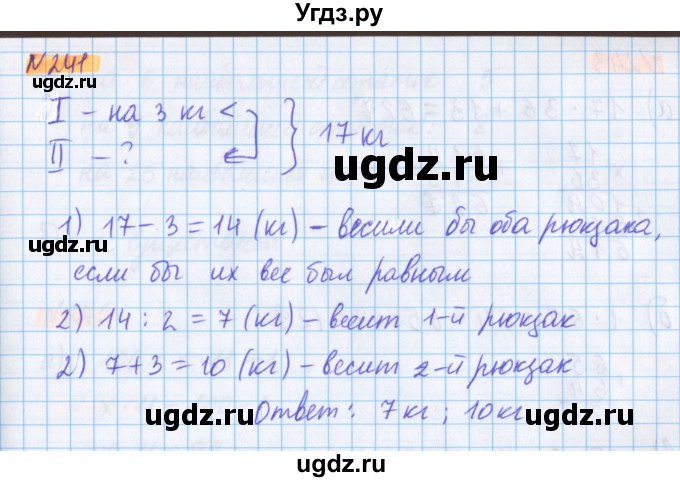 Угдз.ру
№241
ugdz.ru
ugdz.ru
I – на 3 кг <
II – ?
17 кг
ugdz.ru
ugdz.ru
1) 17 – 3 = 14 (кг) – весили бы оба рюкзака,
если бы их вес был равным
ugdz.ru
ugdz.ru
2) 14 : 2 = 7 (кг) – весит 1-й рюкзак
2) 7 + 3 = 10 (кг) – весит 2-й рюкзак
ugdz.ru
ugdz.ru
Ответ: 7 кг; 10 кг
ugdz.ru
ugdz.ru